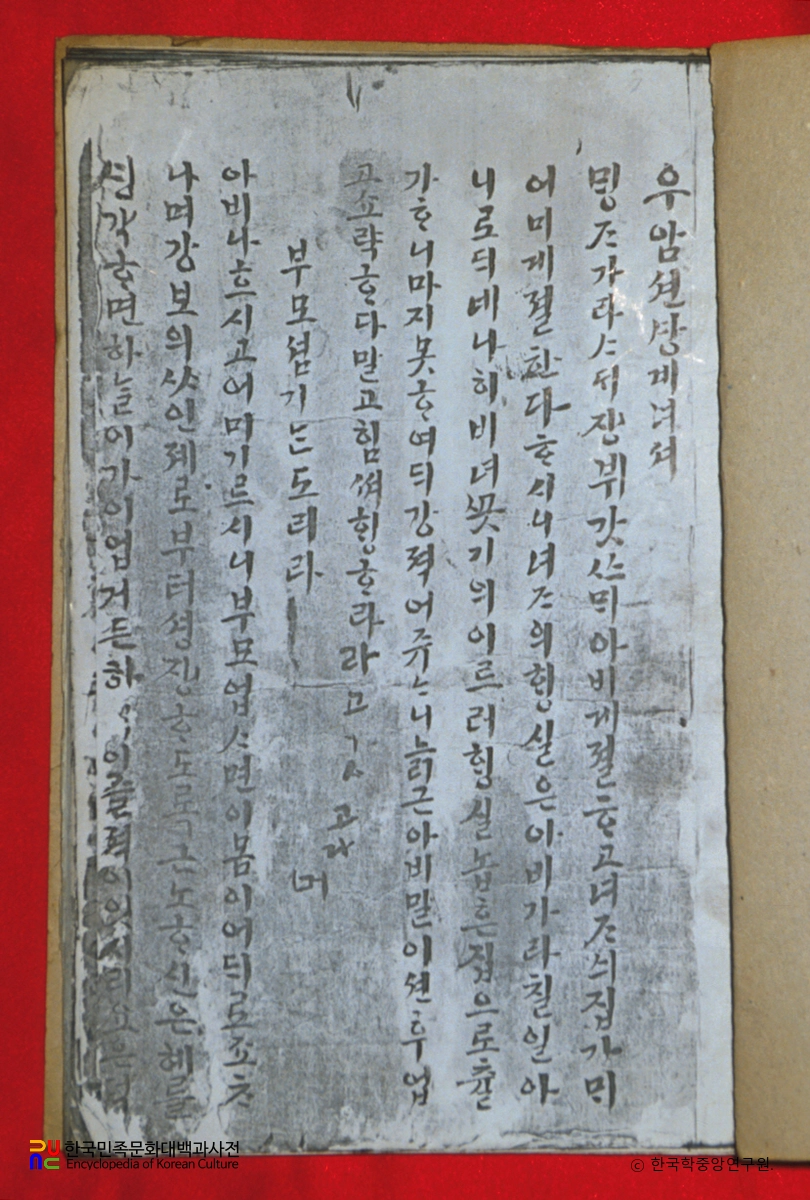 우암션ᄉᆡᆼ계녀셔
ᄆᆡᆼᄌᆞ가라ᄉᆞᄃᆡ장뷔갓ᄉᆞᄆᆡ아비게절ᄒᆞ고녀ᄌᆞ싀집가ᄆᆡ
어미게졀한다ᄒᆞ시니녀ᄌᆞ의ᄒᆡᆼ실은아비가라칠일아
니로ᄃᆡ네나히비녀ᄭᅩᆺ기의이르러ᄒᆡᆼ실놉흔집으로출
가ᄒᆞ니마지못ᄒᆞ여ᄃᆡ강젹어쥬ᄂᆞ니늙근아비말이션후업
고쇼략ᄒᆞ다말고힘써ᄒᆡᆼᄒᆞ라
부모셤기ᄂᆞᆫ도리라
아비나흐시고어미기르시니부모업ᄉᆞ면이몸이어ᄃᆡ로죠ᄎᆞ
나며강보의ᄊᆞ인제로부터셩장ᄒᆞ도록근노ᄒᆞ신은혜를
ᄉᆡᆼ각ᄒᆞ면하ᄂᆞᆯ이가이업거든하
한국민족문화대백과사전
Encyclopedia of Korean Culture
© 한국학중앙연구원.